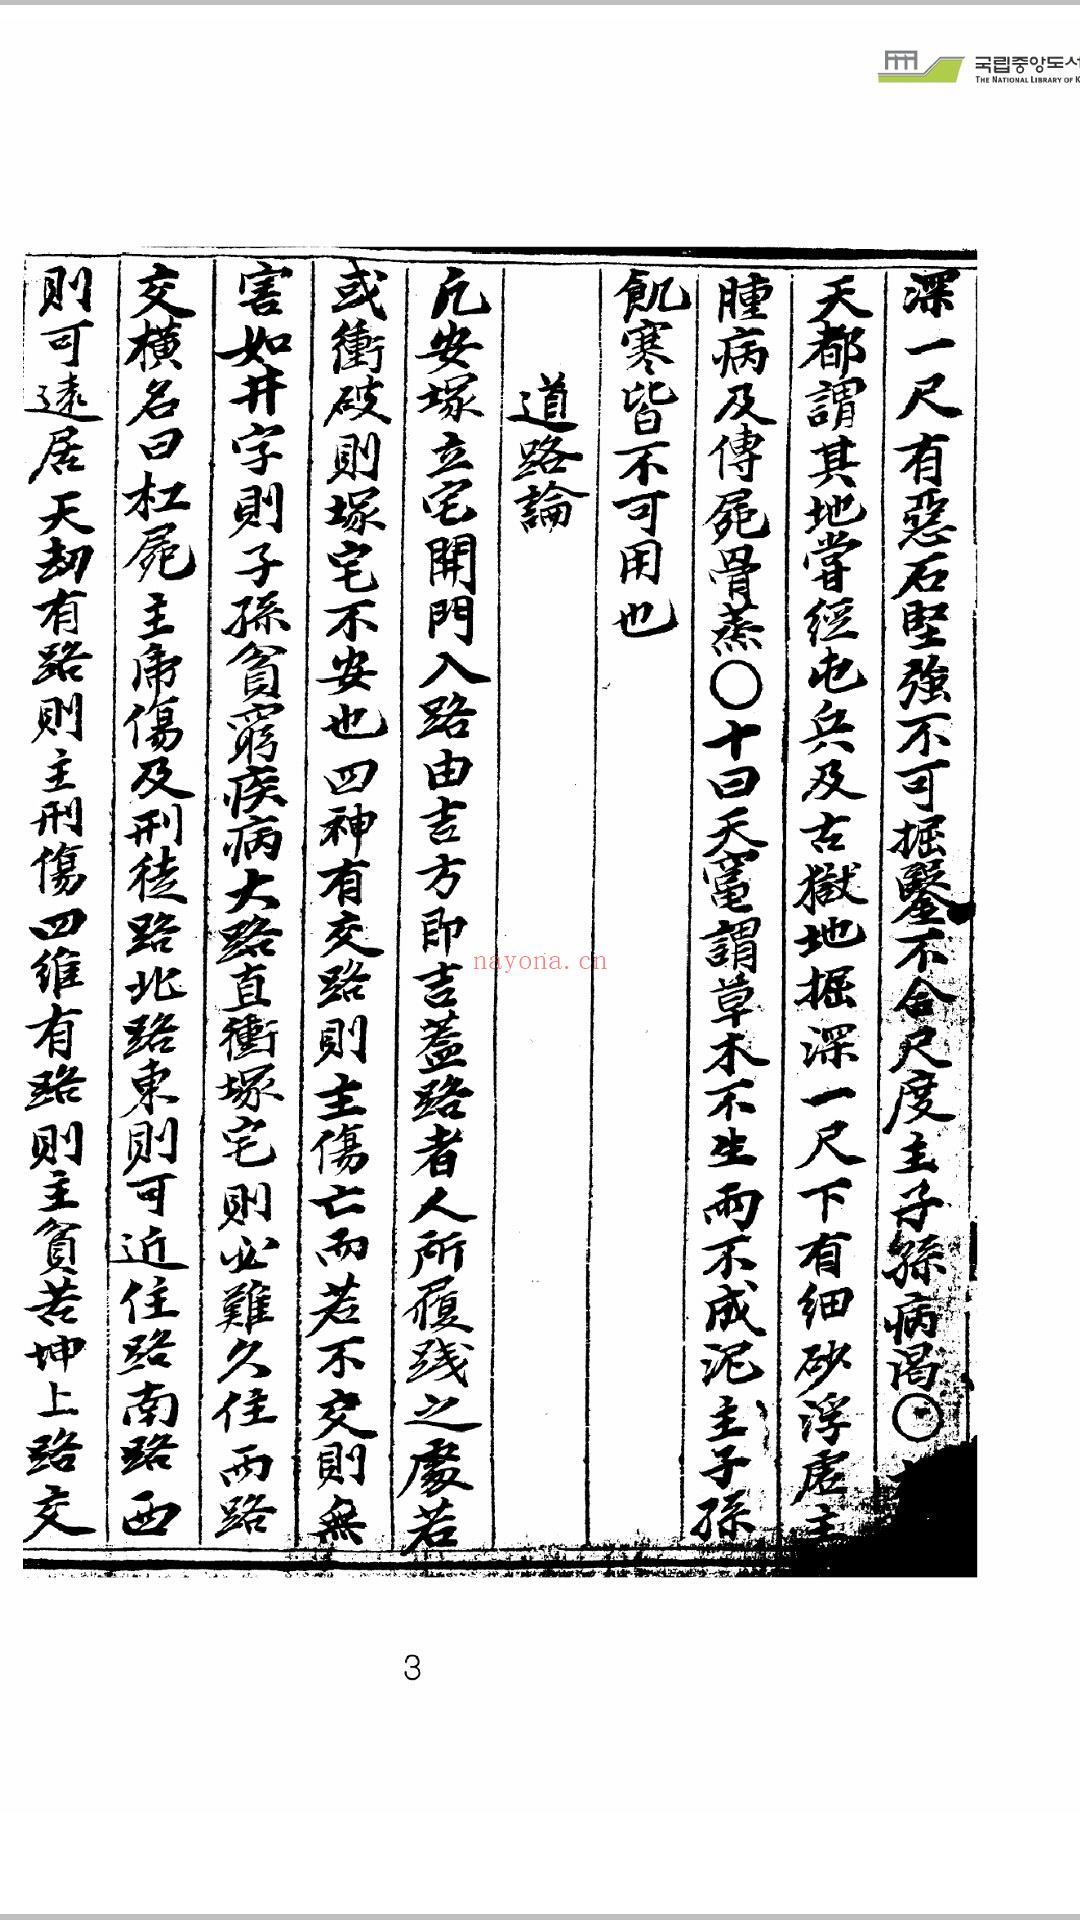 국립중앙도서
THE NATIONAL LIBRARY OF K
深一尺有惡石堅強不可掘鑿不合尺度主子孫病渴〇
天都謂其地嘗經屯兵及古獄地掘深一尺下有細砂浮虛主
腫病及傳屍骨蒸〇十曰天竈謂草木不生雨不成泥主子孫
飢寒皆不可用也
道路論
凡安塚立宅開門入路由吉方即吉蓋路者人所履踐之處若
或衝破則塚宅不安也四神有交路則主傷亡而若不交則無
害如井字則子孫貧窮疾病大路直衝塚宅則必難久住両路
交橫名曰杠屍主虎傷及刑徒路北路東則可近住路南路西
則可遠居天劫有路則主刑傷四維有路則主貧苦坤上路交
nayona.cn
3